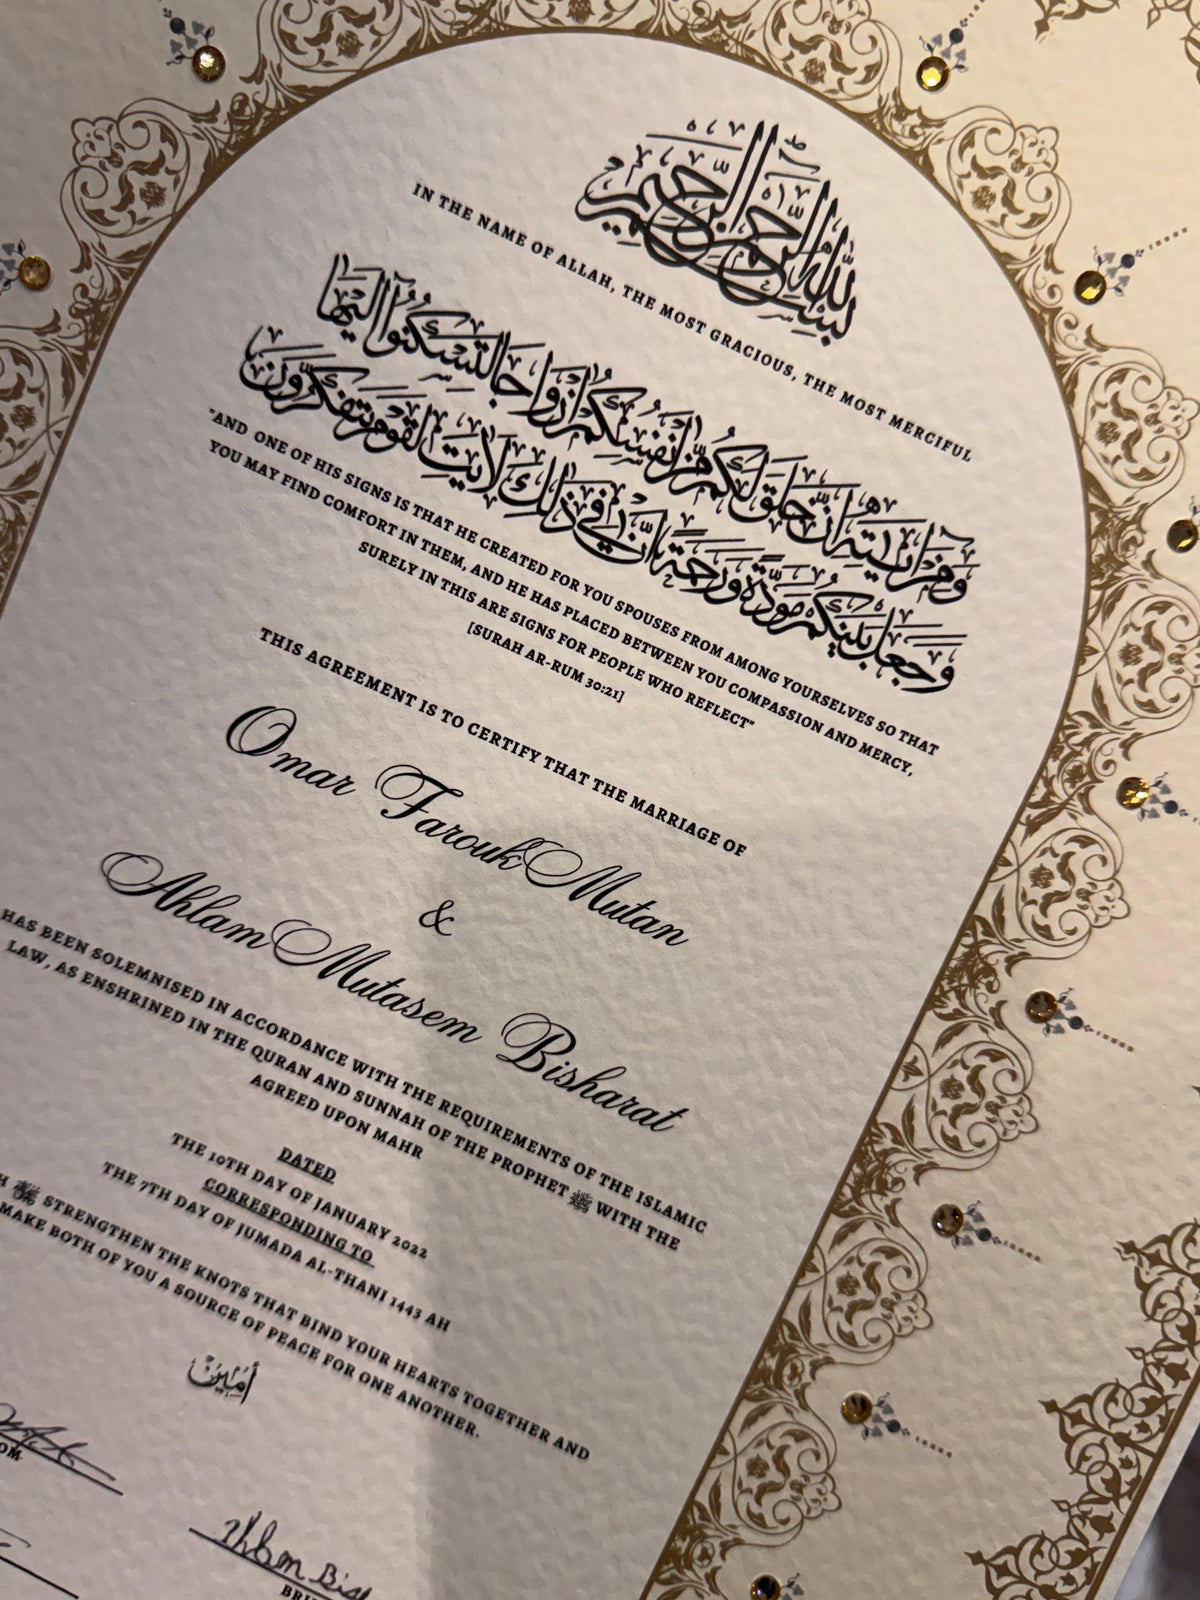 بِسْمِ اللَّهِ الرَّحْمَٰنِ الرَّحِيمِ
IN THE NAME OF ALLAH, THE MOST GRACIOUS, THE MOST MERCIFUL
وَمِنْ آيَاتِهِ أَنْ خَلَقَ لَكُم مِّنْ أَنفُسِكُمْ أَزْوَاجًا لِّتَسْكُنُوا إِلَيْهَا
وَجَعَلَ بَيْنَكُم مَّوَدَّةً وَرَحْمَةً إِنَّ فِي ذَٰلِكَ لَآيَاتٍ لِّقَوْمٍ يَتَفَكَّرُونَ
"AND ONE OF HIS SIGNS IS THAT HE CREATED FOR YOU SPOUSES FROM AMONG YOURSELVES SO THAT
YOU MAY FIND COMFORT IN THEM, AND HE HAS PLACED BETWEEN YOU COMPASSION AND MERCY,
SURELY IN THIS ARE SIGNS FOR PEOPLE WHO REFLECT"
[SURAH AR-RUM 30:21]
THIS AGREEMENT IS TO CERTIFY THAT THE MARRIAGE OF
Omar Farouk Mutan
&
Ahlam Mutasem Bisharat
HAS BEEN SOLEMNISED IN ACCORDANCE WITH THE REQUIREMENTS OF THE ISLAMIC
LAW, AS ENSHRINED IN THE QURAN AND SUNNAH OF THE PROPHET ﷺ WITH THE
AGREED UPON MAHR
DATED
THE 10TH DAY OF JANUARY 2022
CORRESPONDING TO
THE 7TH DAY OF JUMADA AL-THANI 1443 AH
STRENGTHEN THE KNOTS THAT BIND YOUR HEARTS TOGETHER AND
MAKE BOTH OF YOU A SOURCE OF PEACE FOR ONE ANOTHER.
أَمِين